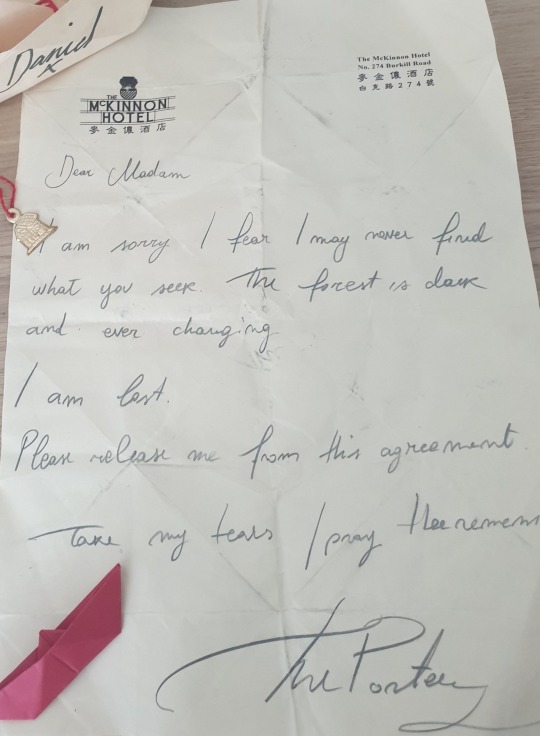 Daniel
x
THE
McKINNON
HOTEL
麥金儂酒店
The McKinnon Hotel
No. 274 Burkill Road
麥金儂酒店
白克路274號
Dear Madam
I am sorry I fear I may never find
what you seek. The forest is dark
and ever changing
I am lost.
Please release me from this agreement.
Take my tears I pray
The Porter